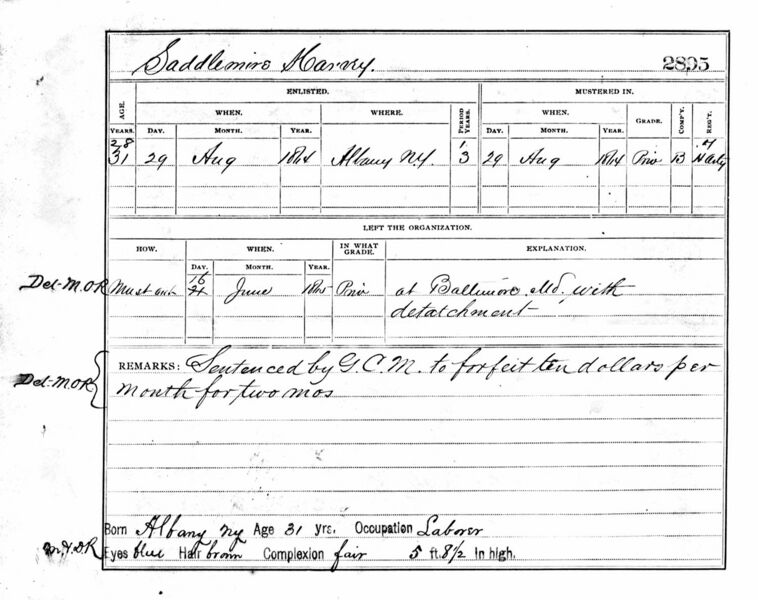 Saddlemire Harvey. 2895
ENLISTED. MUSTERED IN.
AGE. WHEN. WHERE. PERIOD YEARS. WHEN. GRADE. COMP'Y. REG'T.
YEARS. DAY. MONTH. YEAR. DAY. MONTH. YEAR.
28 1 7
31 29 Aug 1864 Albany NY 3 29 Aug 1864 Priv B H Arty
LEFT THE ORGANIZATION.
HOW. WHEN. IN WHAT GRADE. EXPLANATION.
DAY. MONTH. YEAR.
16
Del-M.O.R Must out June 1865 Priv at Baltimore Md, with
detatchment
Del-M.O.R REMARKS: Sentenced by G.C.M. to forfeit ten dollars per
month for two mos
Born Albany NY Age 31 yrs. Occupation Laborer
Eyes blue Hair brown Complexion fair 5 ft. 8 1/2 In high.